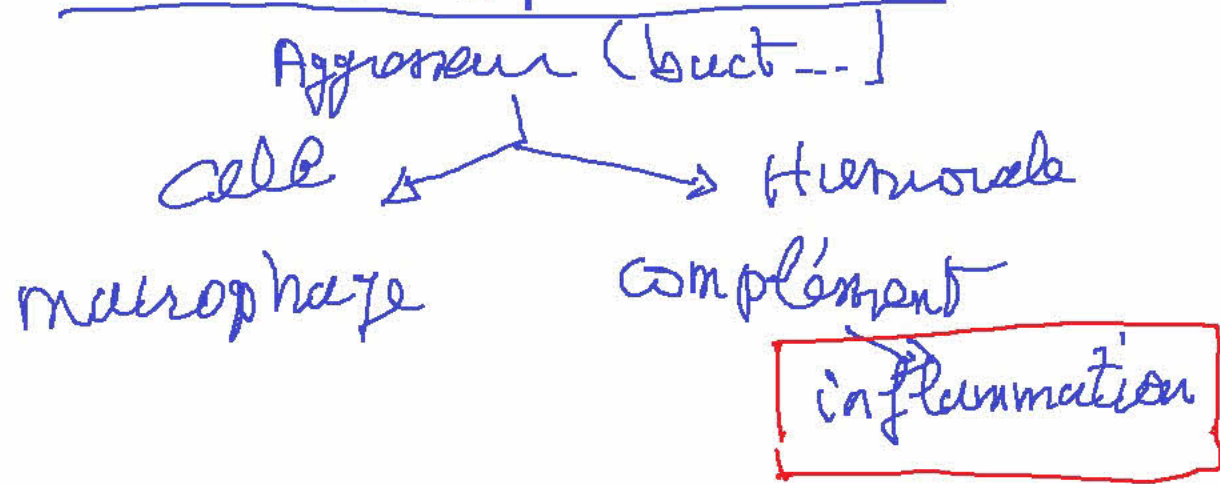 Aggresseur (bact---]
Celle Humorale
macrophage complément
inflammation